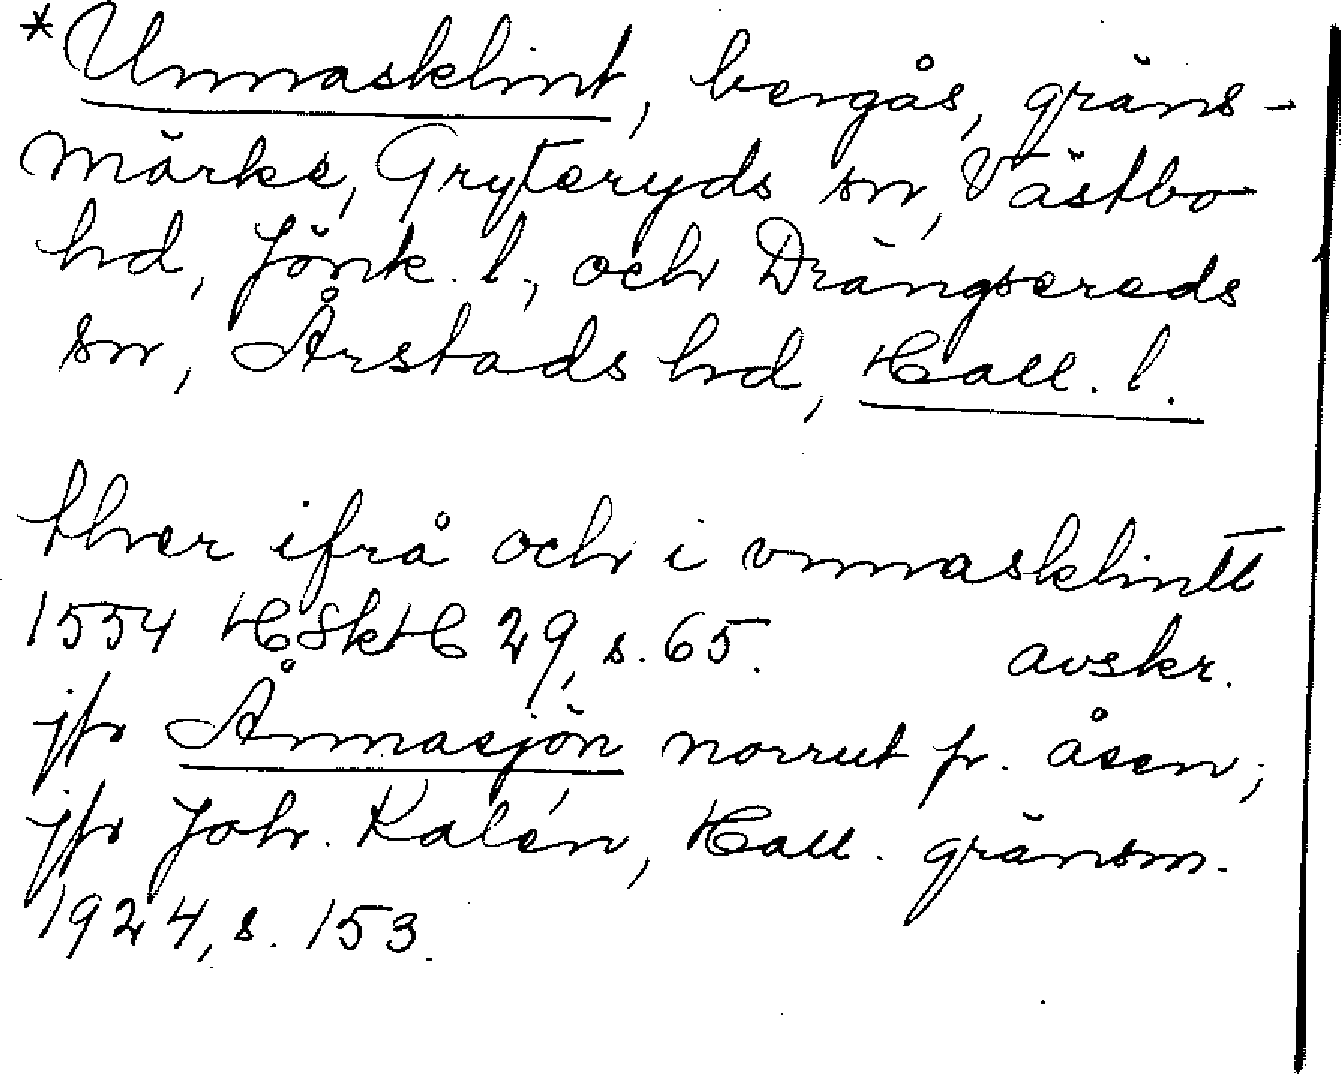 *Unnasklint, bergås, gräns-
märke, Gryteryds sn, Västbo
hd, Jönk. l., och Drängsereds
sn, Årstads hd, Hall. l.
thver ifrå och i vnnasklintt
1554 HSkH 29, s. 65. avskr.
jfr Ånnasjön norrut fr. åsen;
jfr Joh. Kalén, Hall. gränsm.
1924, s. 153.